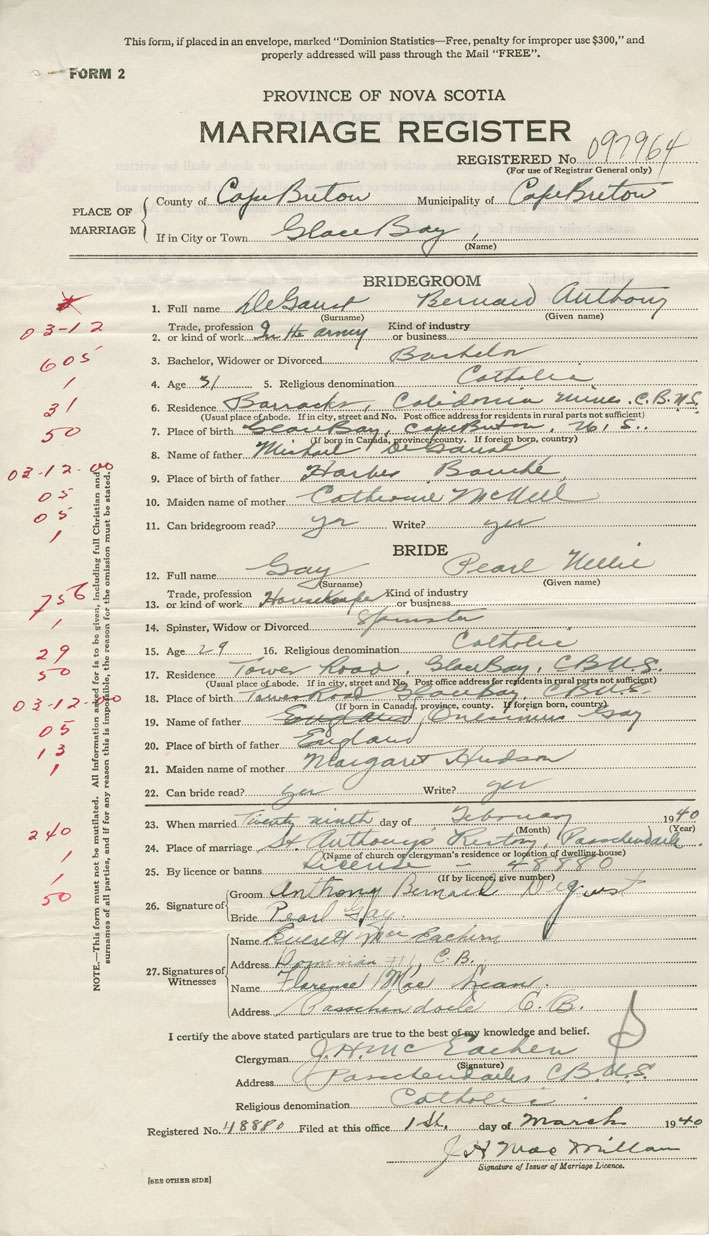 This form, if placed in an envelope, marked "Dominion Statistics—Free, penalty for improper use $300," and
properly addressed will pass through the Mail "FREE".
FORM 2
PROVINCE OF NOVA SCOTIA
MARRIAGE REGISTER
REGISTERED No 097964
(For use of Registrar General only)
PLACE OF MARRIAGE
County of Cape Breton Municipality of Cape Breton
If in City or Town Glace Bay
(Name)
BRIDEGROOM
1. Full name DeGaust Bernard Anthony
(Surname) (Given name)
03-12
2. Trade, profession or kind of work In the army Kind of industry or business
605
3. Bachelor, Widower or Divorced Bachelor
1
4. Age 31 5. Religious denomination Catholic
31
6. Residence Barracks, Caledonia Mines. C.B.N.S.
(Usual place of abode. If in city, street and No. Post office address for residents in rural parts not sufficient)
50
7. Place of birth Glace Bay, Cape Breton, N.S.
(If born in Canada, province, county. If foreign born, country)
8. Name of father Michael DeGaust
03-12-00
9. Place of birth of father Harbor Bouche
05
10. Maiden name of mother Catherine McNeil
05
11. Can bridegroom read? yes Write? yes
1
BRIDE
12. Full name Gay Pearl Nellie
(Surname) (Given name)
756
13. Trade, profession or kind of work Housekeeper Kind of industry or business
1
14. Spinster, Widow or Divorced Spinster
29
15. Age 29 16. Religious denomination Catholic
50
17. Residence Tower Road, Glace Bay, C.B.N.S.
(Usual place of abode. If in city, street and No. Post office address for residents in rural parts not sufficient)
03-12-00
18. Place of birth Tower Road Glace Bay, C.B.N.S.
(If born in Canada, province, county. If foreign born, country)
05
19. Name of father England Gay
13
20. Place of birth of father England
1
21. Maiden name of mother Margaret Hudson
22. Can bride read? yes Write? yes
23. When married Twenty ninth day of February 1940
(Month) (Year)
240
24. Place of marriage St. Anthony's Rectory, Passchendaele.
(Name of church or clergyman's residence or location of dwelling-house)
1
25. By licence or banns License - 48880
(If by licence, give number)
1
50
26. Signature of
Groom Anthony Bernard Degust
Bride Pearl Gay.
27. Signatures of Witnesses
Name Everett MacEachern
Address Dominion, C.B.
Name Florence MacLean.
Address Passchendaele C.B.
I certify the above stated particulars are true to the best of my knowledge and belief.
Clergyman J.H. McEachen
(Signature)
Address Passchendaele, C.B.N.S.
Religious denomination Catholic
Registered No. 48880 Filed at this office 1st. day of March 1940
J H MacMillan
Signature of Issuer of Marriage Licence.
[SEE OTHER SIDE]
NOTE.—This form must not be mutilated. All information asked for is to be given, including full Christian and
surnames of all parties, and if for any reason this is impossible, the reason for the omission must be stated.